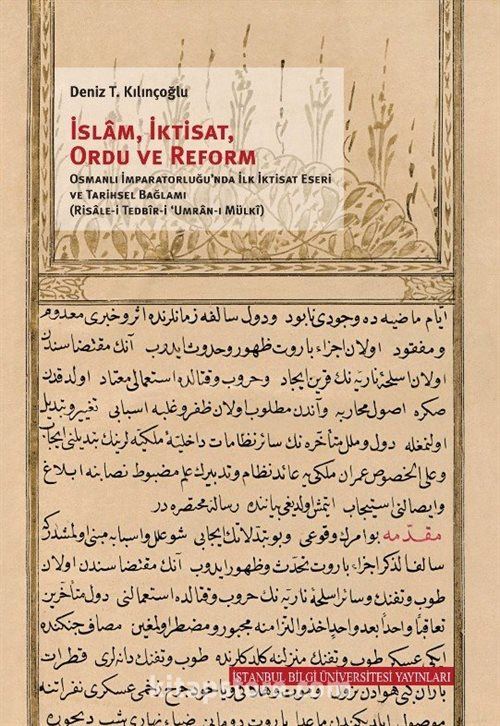 Deniz T. Kılınçoğlu
İSLÂM, İKTİSAT,
ORDU VE REFORM
OSMANLI İMPARATORLUĞU'NDA İLK İKTİSAT ESERİ
VE TARİHSEL BAĞLAMI
(RİSÂLE-İ TEDBÎR-İ 'UMRÂN-I MÜLKÎ)
ایام ماضیه ده وجودی نابود ودول سالفه زمانلرنده اثر وخبری معدوم
ومفقود اولان اجزاء باروت ظهور وحدوث ایدوب آنك مقتضاسندن
اولان اسلحهٔ ناریه نك قرین ایجاد وحروب وقتالده استعمالی معتاد اولدقدن
صکره اصول محاربه وآندن مطلوب اولان ظفر وغلبه اسبابی تغییر وتبدیل
اولنمغله دول وملل متأخره نك سائر نظامات داخلیهٔ ملکیه لرینك تبدیلنی ایجاب
وعلی الخصوص عمران ملکی یه عائد نظام وتدبیرك علم مضبوط نصابنه ابلاغ
وایصالنی استیجاب ایتمش اولدیغی بیاننده رسالهٔ مختصره در
مقدمه بو امرك وقوعی وبو تبدلاتك ایجابی شو علل واسبابه مبنی ولمشدرکه
سالفا لذکر اجزاء باروت تحدث وظهور ایدوب آنك مقتضاسندن اولان
طوب وتفنك وسائر اسلحهٔ ناریه نك حروب وقتالده استعمالنی دول متأخرین
تعاقبا واحدا بعد واحد اخذ والتزامنه مجبور ومضطر اولمغین مصاف جنکنده
ایکی عسکر طوب وتفنك منزلنه کلدکلرنده طوب وتفنك دانه لری قطرات
باران کبی هوادن
عسکری نفراتنه
İSTANBUL BİLGİ ÜNİVERSİTESİ YAYINLARI